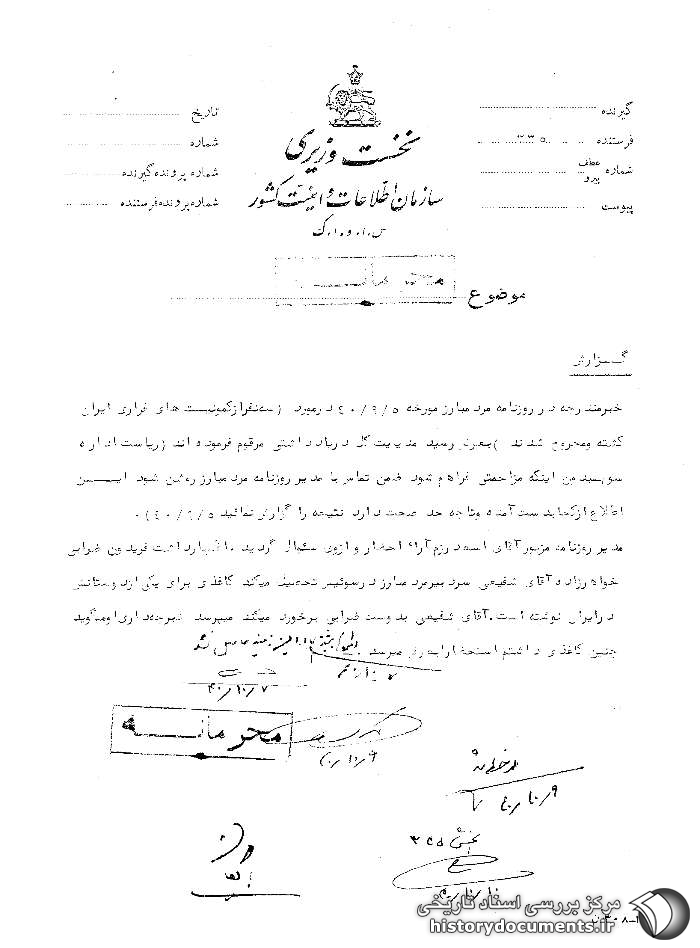 گیرنده
فرستنده ۳۳۵
شماره عطف پیرو
پیوست
نخست وزیری
سازمان اطلاعات و امنیت کشور
س.ا.و.ا.ک
تاریخ
شماره
شماره پرونده گیرنده
شماره پرونده فرستنده
محرمانه
موضوع
گزارش
خبر مندرجه در روزنامه مرد مبارز مورخه ۴۰/۹/۵ در مورد (سه نفر از کمونیست های فراری ایران
کشته و مجروح شدند) بعرض رسید مدیریت کل در یادداشتی مرقوم فرموده اند (ریاست اداره
سوم بدون اینکه مزاحمتی فراهم شود ضمن تماس با مدیر روزنامه مرد مبارز روشن شود ایــن
اطلاع از کجا بدست آمده و تا چه حد صحت دارد نتیجه را گزارش نمائید ۴۰/۹/۵).
مدیر روزنامه مزبور آقای اسد رزم آرا احضار و از وی سئوال گردید اظهار داشت فریدون ضرابی
خواهرزاده آقای شفیعی سردبیر مرد مبارز در سوئیس تحصیل میکند کاغذی برای یکی از دوستانش
در ایران نوشته است. آقای شفیعی بدوست ضرابی برخورد میکند میپرسد خبر چه داری او میگوید
چنین کاغذی داشتم استحضارا بعرض میرسد
۴۰/۱۰/۷
محرمانه
۴۰/۱۰/۹
ملاحظه شد
۴۰/۱۰/۹
بخش ۳۳۵
۱۰/۱۰
۸-۳۰۱
مرکز بررسی اسناد تاریخی
historydocuments.ir